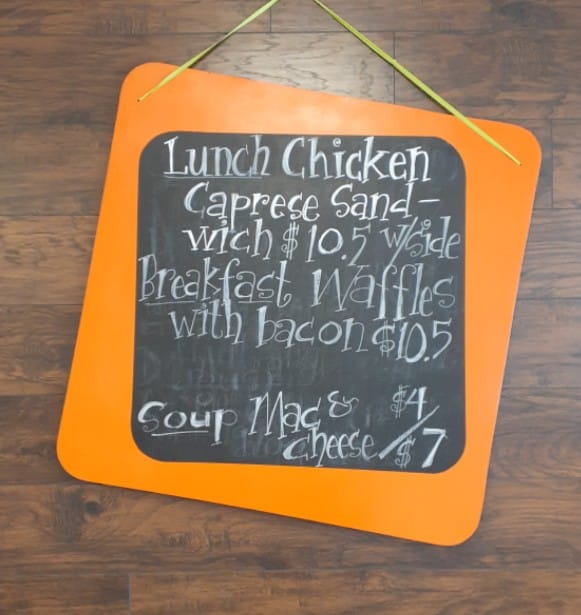 Lunch Chicken
Caprese Sand-
wich $10.5 w/side
Breakfast Waffles
with bacon $10.5
Soup Mac & $4/
cheese $7